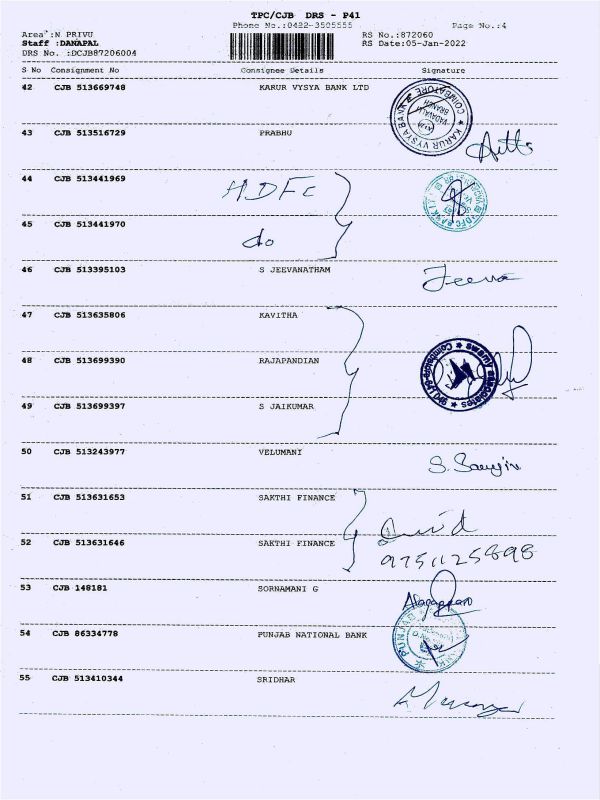 TPC/CJB DRS - P41
Phone No.:0422-3505555 Page No.:4
Area :N PRIVU RS No.:872060
Staff :DANAPAL RS Date:05-Jan-2022
DRS No. :DCJB87206004
S No Consignment No Consignee Details Signature
42 CJB 513669748 KARUR VYSYA BANK LTD
KARUR VYSYA BANK
VADAVALLI
BRANCH
COIMBATORE
43 CJB 513516729 PRABHU
44 CJB 513441969 HDFC
HDFC BANK LTD
45 CJB 513441970 do
46 CJB 513395103 S JEEVANATHAM Jeeva
47 CJB 513635806 KAVITHA
48 CJB 513699390 RAJAPANDIAN
swamy associates
49 CJB 513699397 S JAIKUMAR
50 CJB 513243977 VELUMANI
51 CJB 513631653 SAKTHI FINANCE
52 CJB 513631646 SAKTHI FINANCE 9751125898
53 CJB 148181 SORNAMANI G Alagappan
54 CJB 86334778 PUNJAB NATIONAL BANK
PUNJAB
BANK
55 CJB 513410344 SRIDHAR